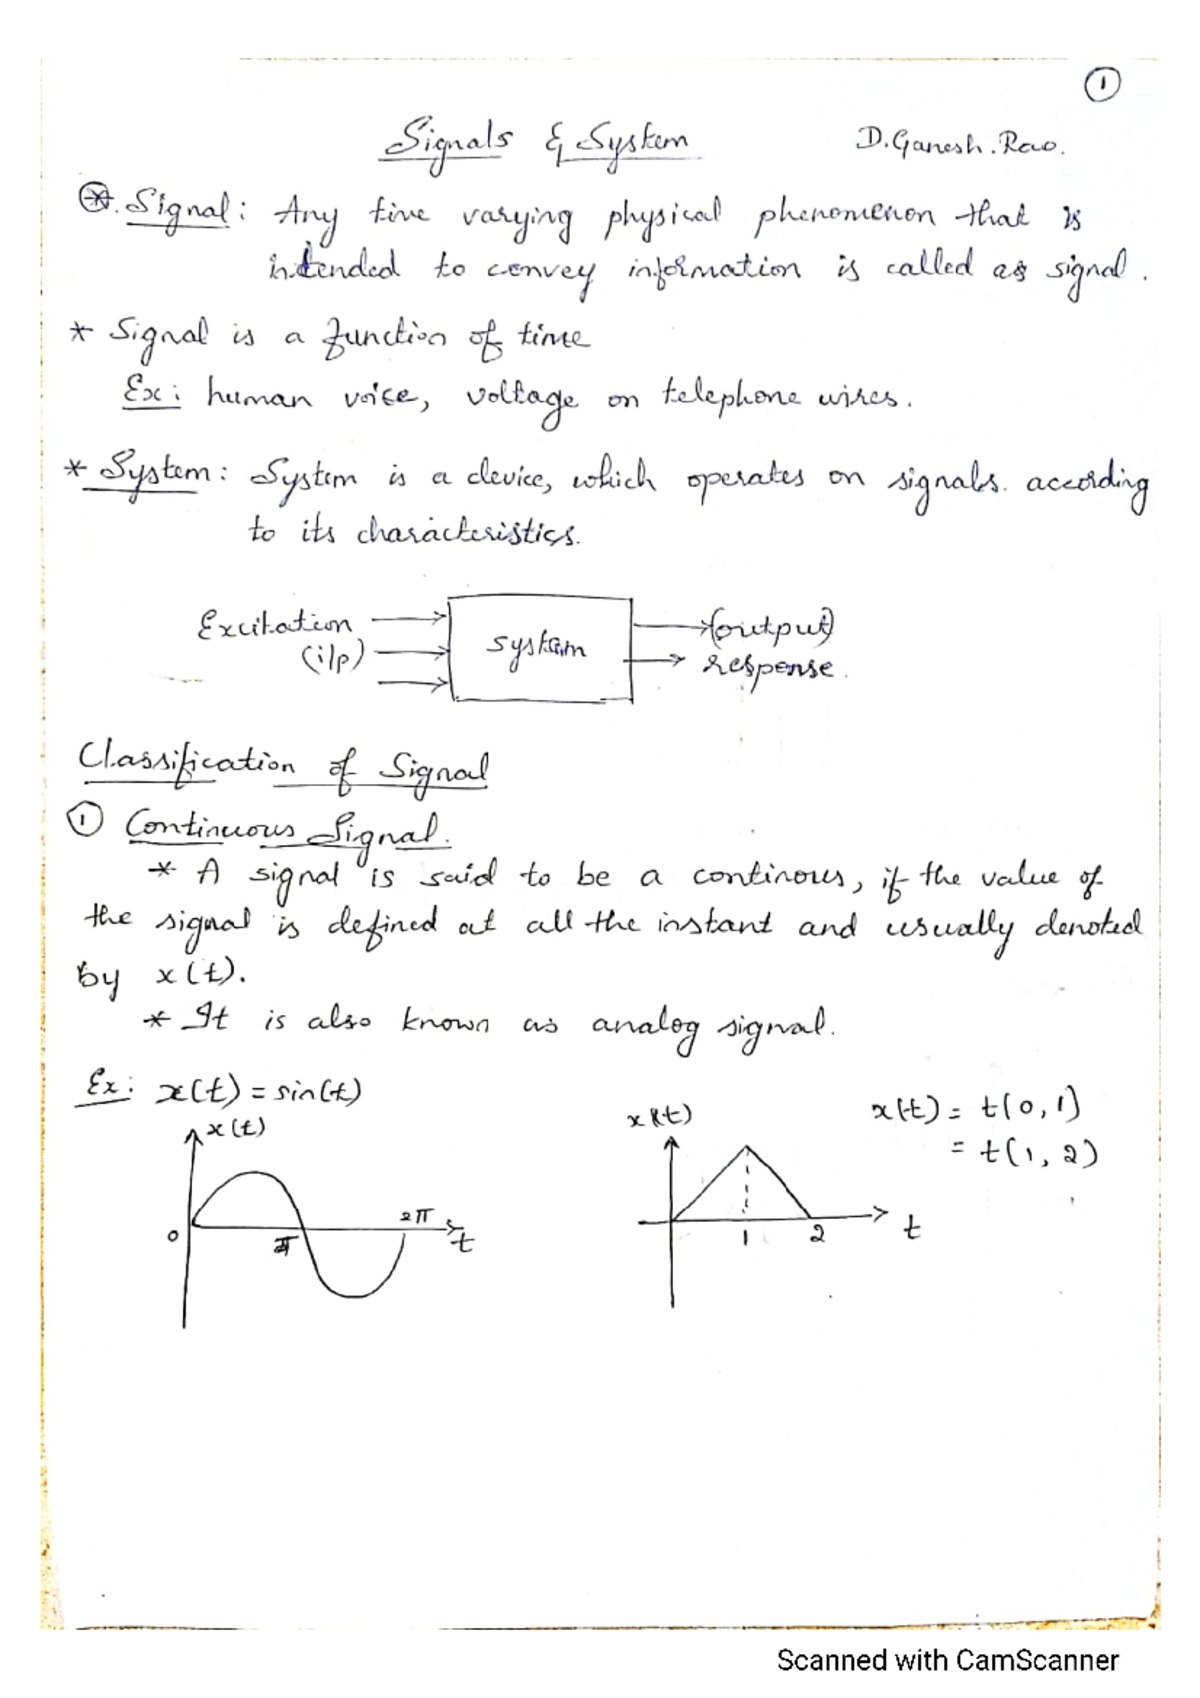 1
Signals & System D.Ganesh.Rao.
*. Signal: Any time varying physical phenomenon that is
intended to convey information is called as signal.
* Signal is a function of time
Ex: human voice, voltage on telephone wires.
* System: System is a device, which operates on signals. according
to its characteristics.
Excitation (output)
(i/p) system response.
Classification of Signal
1 Continuous Signal.
* A signal is said to be a continous, if the value of
the signal is defined at all the instant and usually denoted
by x(t).
* It is also known as analog signal.
Ex: x(t) = sin(t)
x(t) x(t) x(t) = t(0,1)
= t(1, 2)
0 π 2π t 1 2 t
Scanned with CamScanner